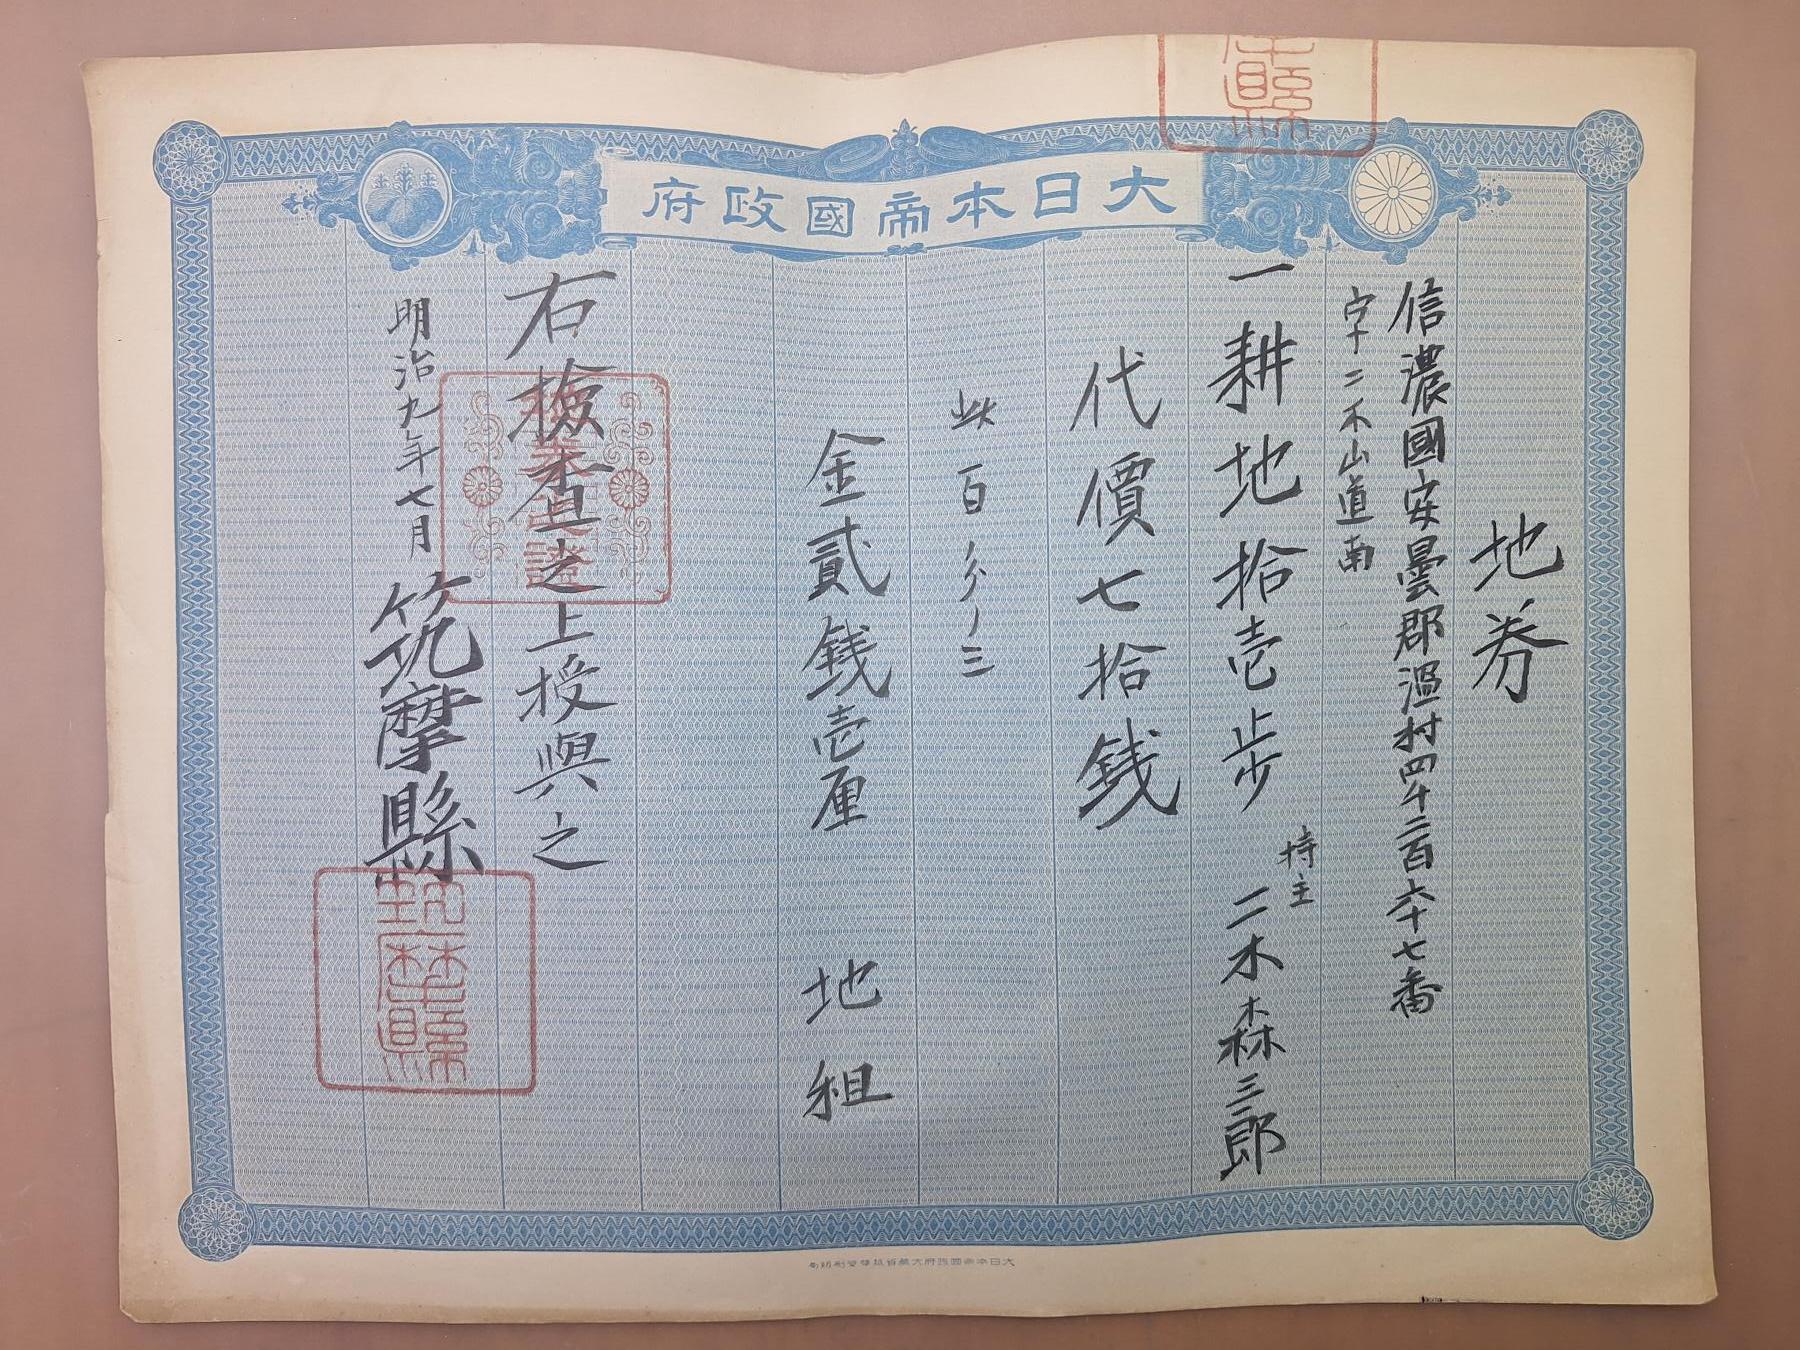 大日本帝國政府
地券
信濃國安曇郡温村四千二百六十七番
字二木山道南
一耕地拾壱歩
持主
二木森三郎
代價七拾銭
此百分ノ三
金貳銭壱厘 地租
右檢査之上授與之
明治九年七月
筑摩縣
大日本帝國政府大蔵省紙幣寮製造